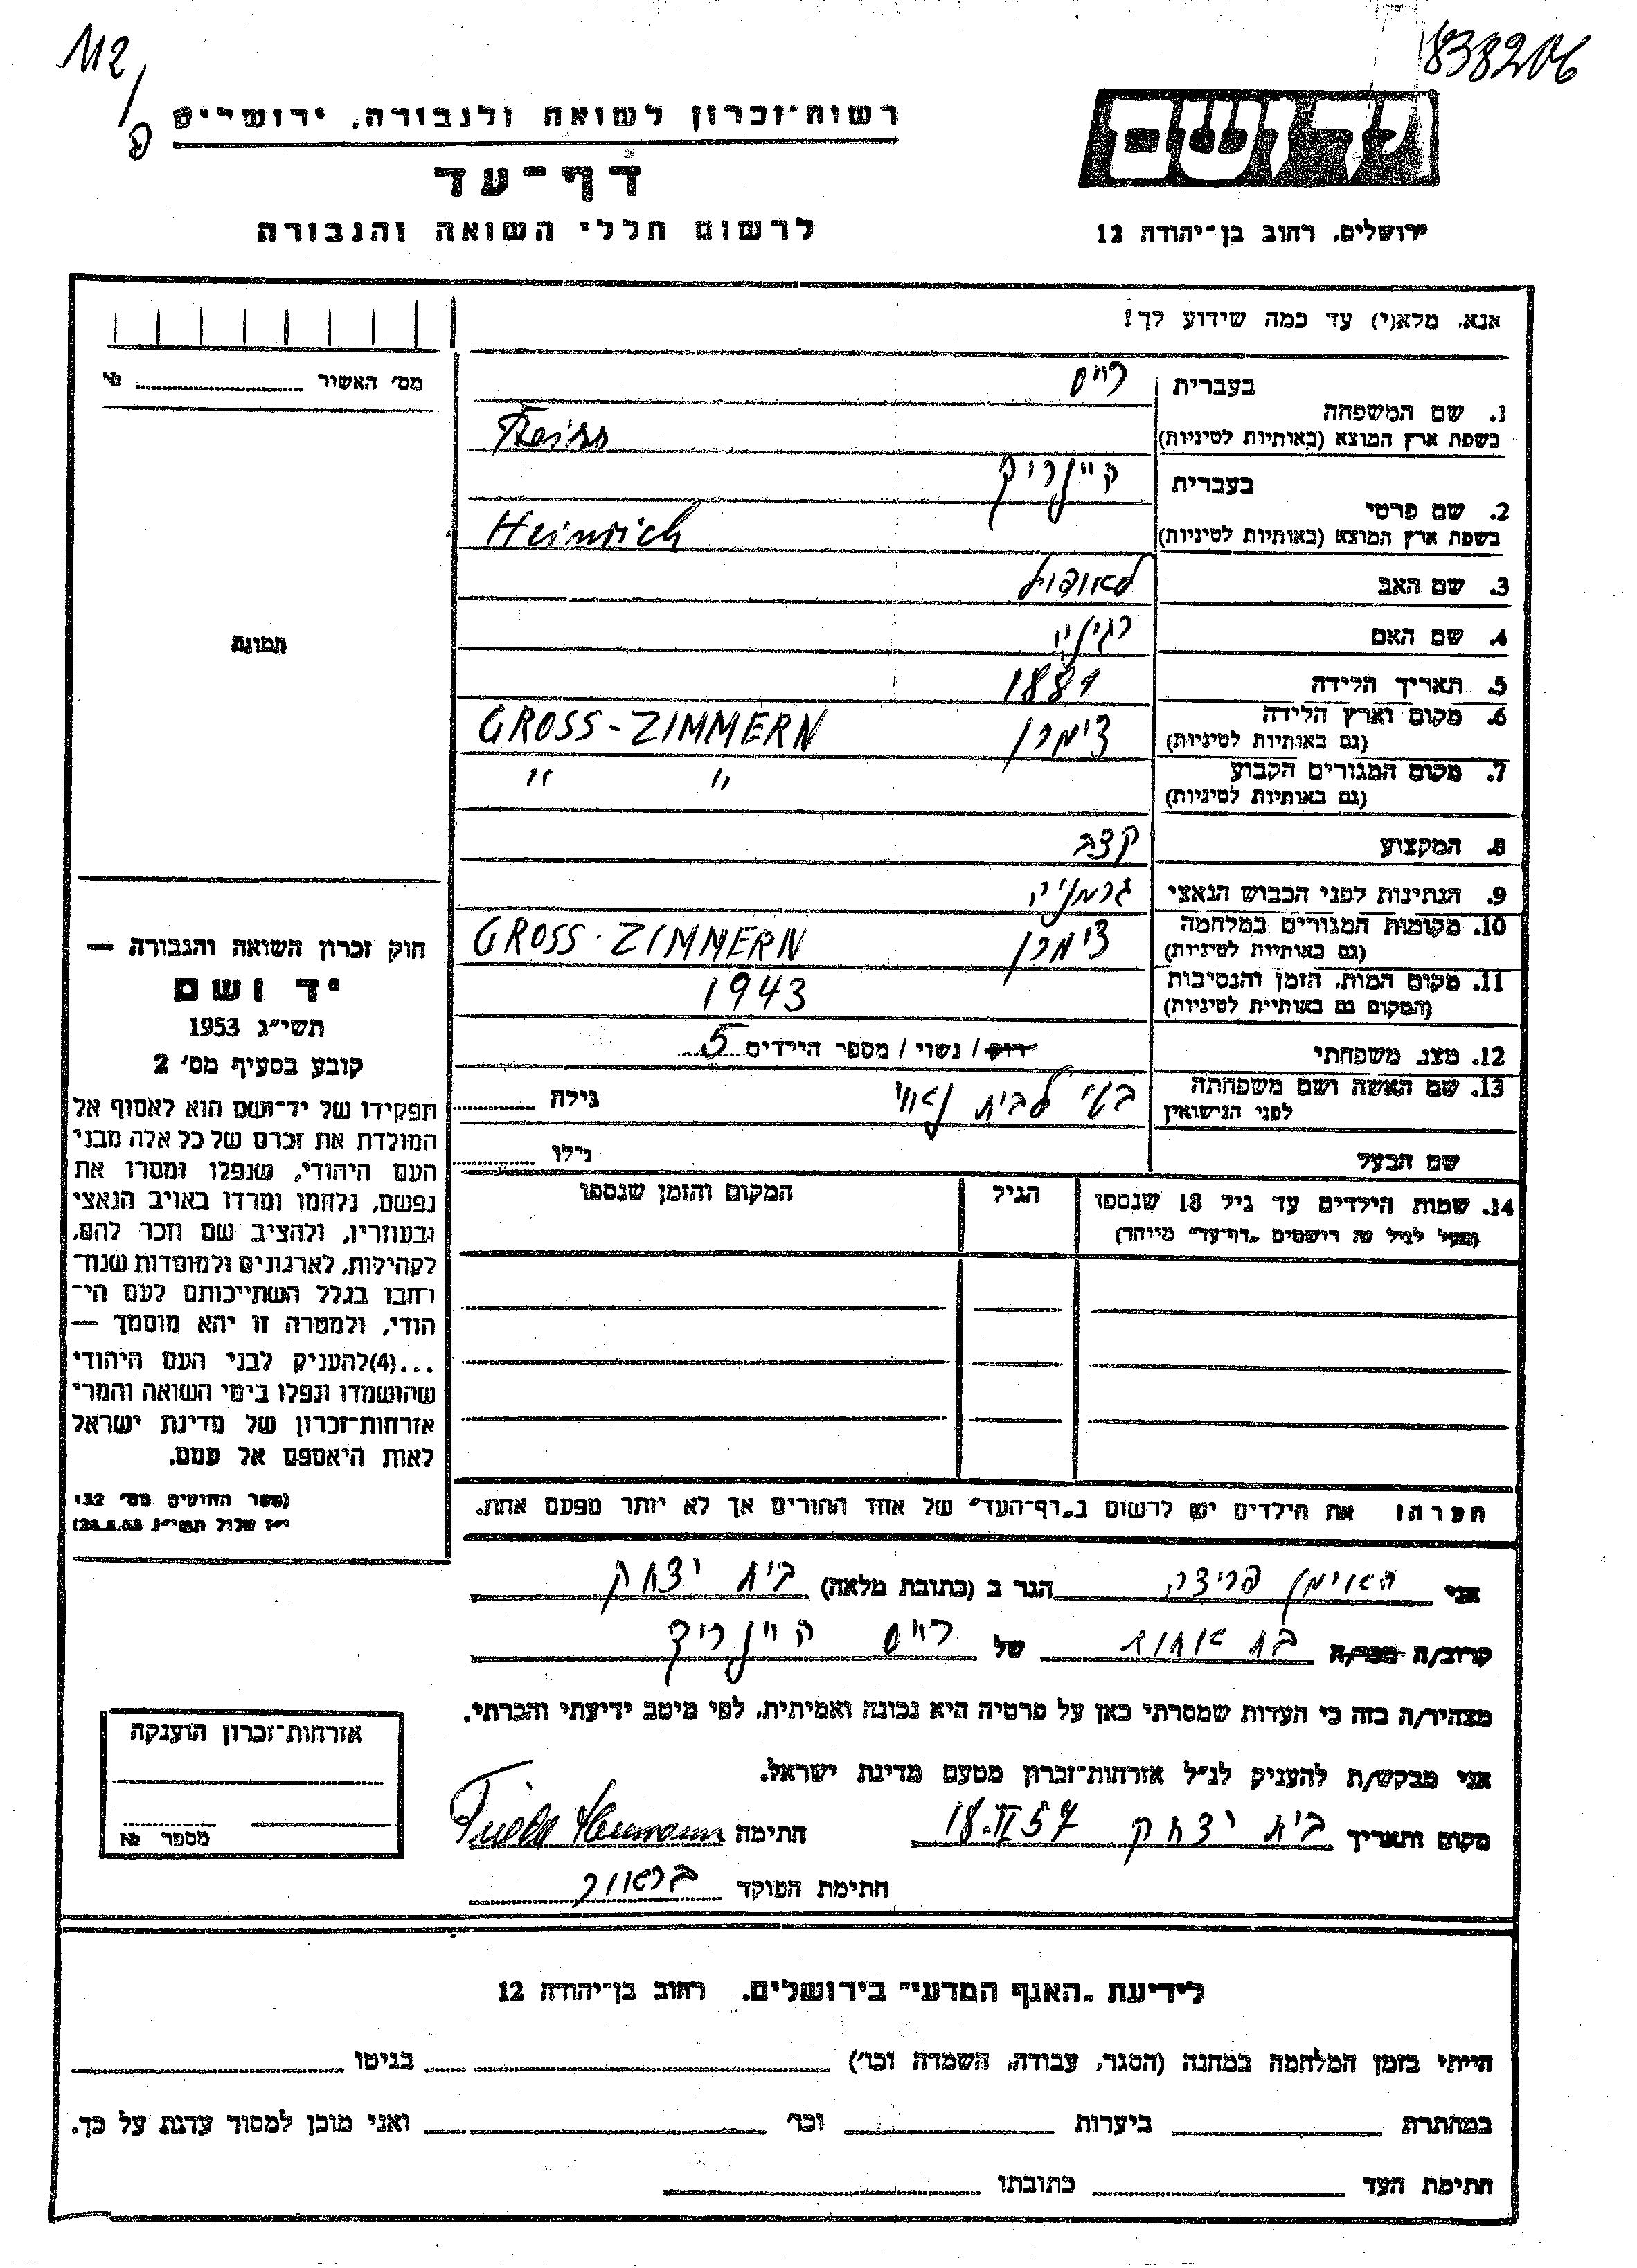 112/פ
838206
רשות־זכרון לשואה ולגבורה, ירושלים
דף־עד
לרשום חללי השואה והגבורה
יד ושם
ירושלים, רחוב בן־יהודה 12
אנא, מלא(י) עד כמה שידוע לך!
מס' האשור № 
תמונה
1. שם המשפחה בעברית רייס
בשפת ארץ המוצא (באותיות לטיניות) Reiss
2. שם פרטי בעברית היינריך
בשפת ארץ המוצא (באותיות לטיניות) Heinrich
3. שם האב לאופולד
4. שם האם רגינה
5. תאריך הלידה 1881
6. מקום וארץ הלידה צימרן GROSS-ZIMMERN
(גם באותיות לטיניות)
7. מקום המגורים הקבוע " "
(גם באותיות לטיניות)
8. המקצוע קצב
9. הנתינות לפני הכבוש הנאצי גרמניה
10. מקומות המגורים במלחמה צימרן GROSS-ZIMMERN
(גם באותיות לטיניות)
11. מקום המות, הזמן והנסיבות 1943
(המקום גם באותיות לטיניות)
12. מצב משפחתי רווק / נשוי / מספר הילדים 5
13. שם האשה ושם משפחתה לפני הנישואין בטי לבית גילה
שם הבעל גילו
14. שמות הילדים עד גיל 18 שנספו הגיל המקום והזמן שנספו
(מעל לגיל זה רושמים "דף־עד" מיוחד)
חוק זכרון השואה והגבורה —
יד ושם
תשי"ג 1953
קובע בסעיף מס' 2
תפקידו של יד־ושם הוא לאסוף אל
המולדת את זכרם של כל אלה מבני
העם היהודי, שנפלו ומסרו את
נפשם, נלחמו ומרדו באויב הנאצי
ובעוזריו, ולהציב שם וזכר להם,
לקהילות, לארגונים ולמוסדות שנח־
רבו בגלל השתייכותם לעם הי־
הודי, ולמטרה זו יהא מוסמך —
...(4)להעניק לבני העם היהודי
שהושמדו ונפלו בימי השואה והמרי
אזרחות־זכרון של מדינת ישראל
לאות היאספם אל עמם.
(ספר החוקים מס' 132,
י"ז אלול תשי"ג 28.8.53)
הערה: את הילדים יש לרשום ב"דף־העד" של אחד ההורים אך לא יותר מפעם אחת.
אני הוימן פרידה הגר ב (כתובת מלאה) בית יצחק
קרוב/ה מכר/ה בת אחות של רייס היינריך
מצהיר/ה בזה כי העדות שמסרתי כאן על פרטיה היא נכונה ואמיתית, לפי מיטב ידיעתי והכרתי.
אני מבקש/ת להעניק לנ"ל אזרחות־זכרון מטעם מדינת ישראל.
מקום ותאריך בית יצחק 18.II 57 חתימה
חתימת הפוקד
אזרחות־זכרון הוענקה
מספר №
לידיעת "האגף המדעי" בירושלים, רחוב בן־יהודה 12
הייתי בזמן המלחמה במחנה (הסגר, עבודה, השמדה וכו') בגיטו
במחתרת ביערות וכו' ואני מוכן למסור עדות על כך.
חתימת העד כתובתו